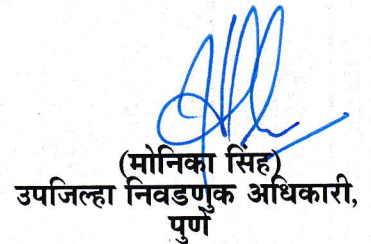 (मोनिका सिंह)
उपजिल्हा निवडणुक अधिकारी,
पुणे